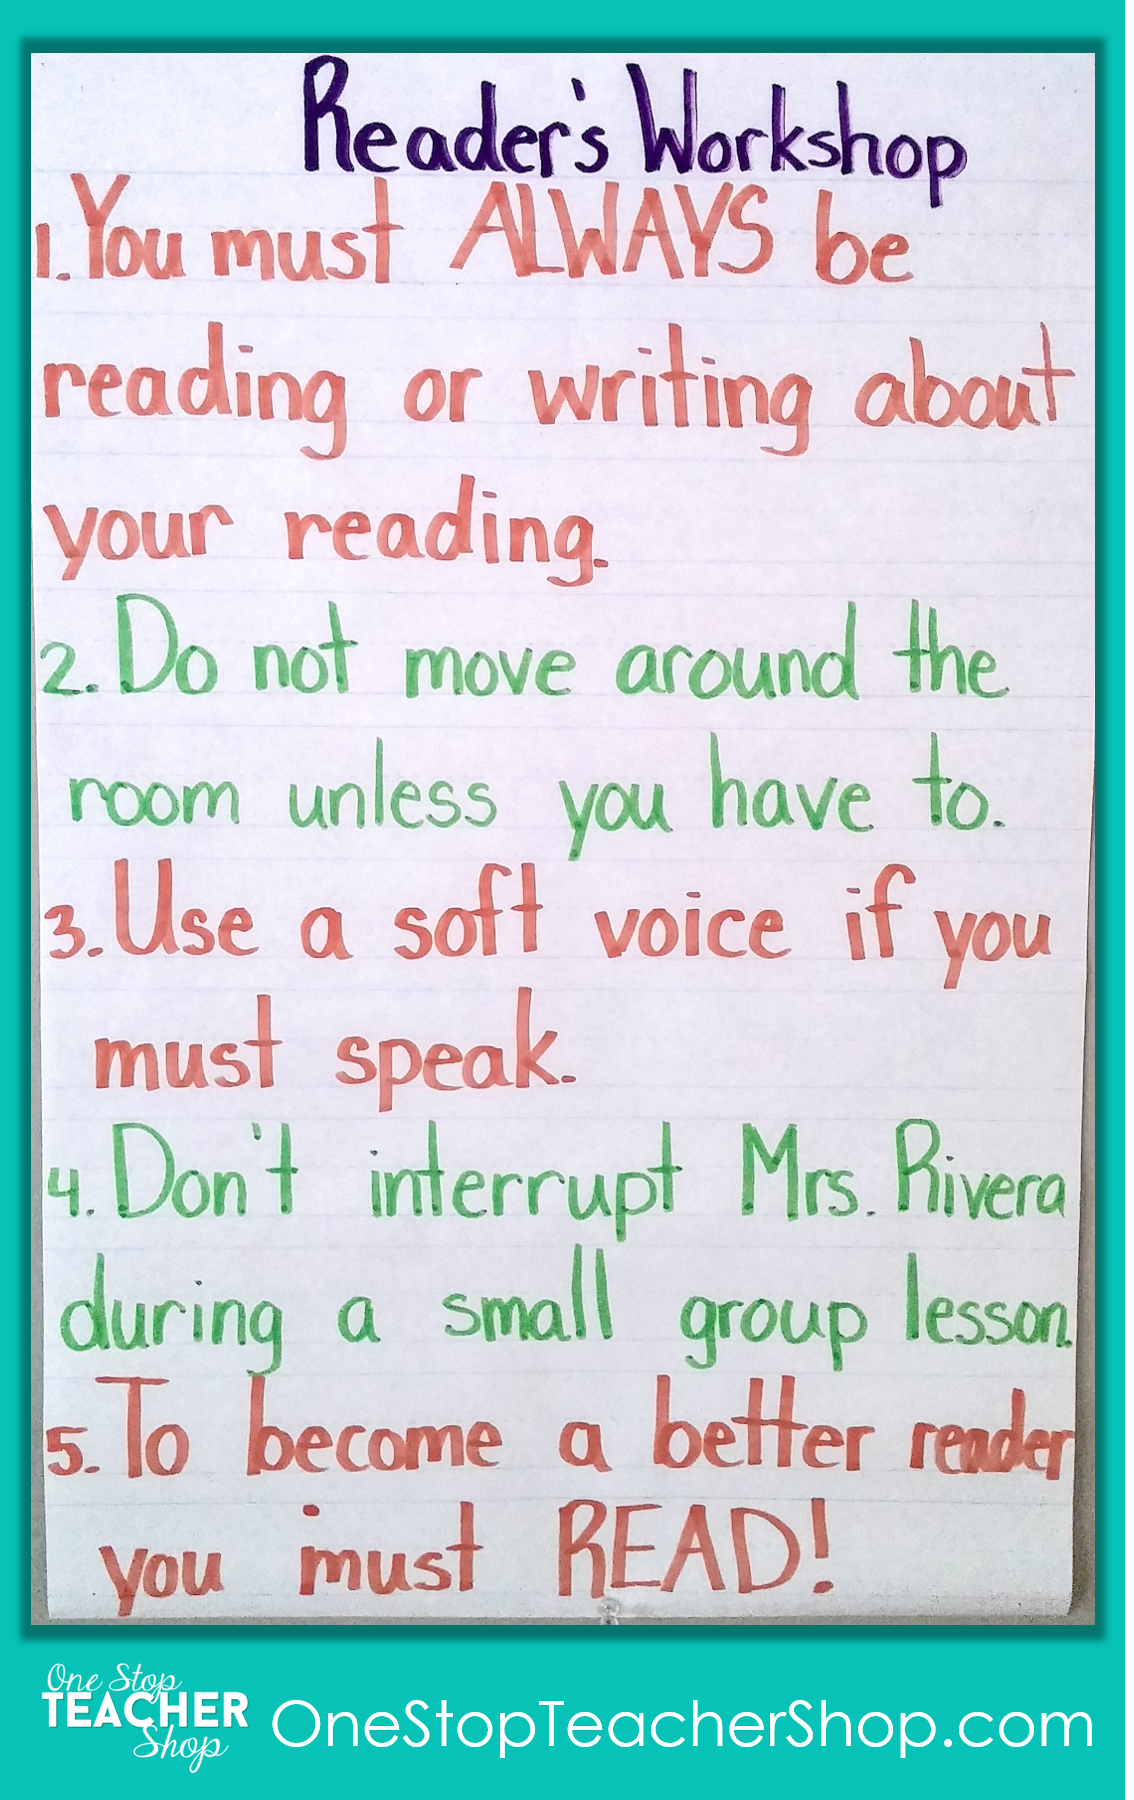 Reader's Workshop
1. You must ALWAYS be
reading or writing about
your reading.
2. Do not move around the
room unless you have to.
3. Use a soft voice if you
must speak.
4. Don't interrupt Mrs. Rivera
during a small group lesson.
5. To become a better reader
you must READ!
One Stop
TEACHER
Shop
OneStopTeacherShop.com